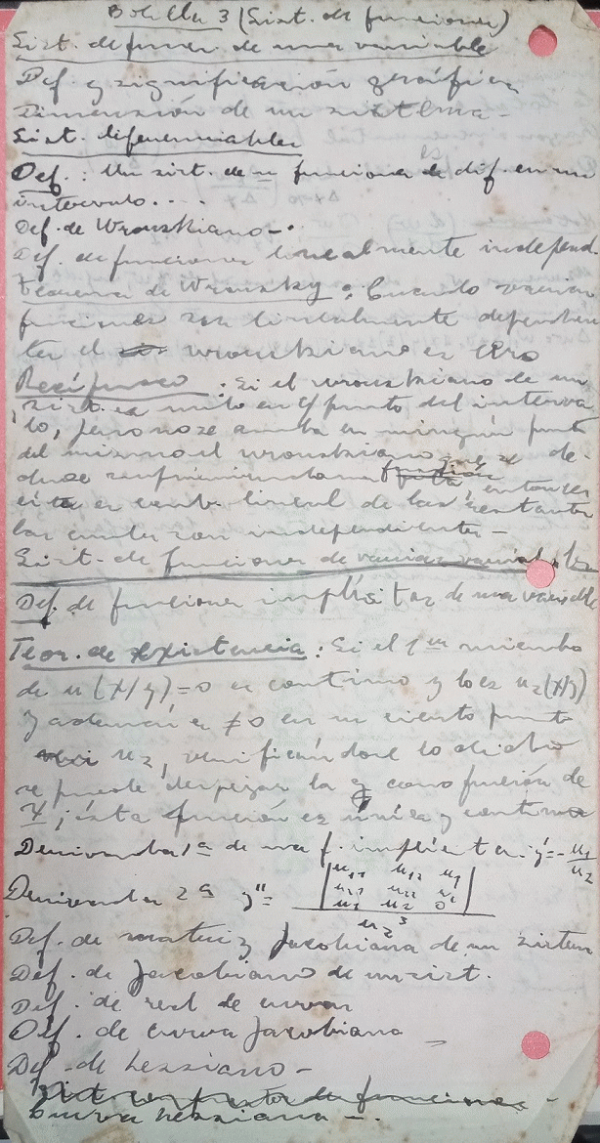 Bolilla 3 (Sist. de funciones)
Sist. de func. de una variable
Def. y significación gráfica
Dimensión de un sistema -
Sist. diferenciables
Def.: Un sist. de n funciones es de dif. en un
intervalo....
Def. de Wronskiano -
Def. de funciones linealmente independ.
Teorema de Wronsky: Cuando varias
funciones son linealmente dependien
tes el wronskiano es cero
Recíproco: Si el wronskiano de un
sist. es nulo en c/ punto del interva
lo, pero no se anula en ningún punto
del mismo el wronskiano que se de-
duce suprimiendo una función, entonces
ésta es comb. lineal de las restantes
las cuales son independientes -
Sist. de funciones de varias variables
Def. de funciones implícitas de una variable
Teor. de existencia: Si el 1er miembro
de u(x/y)=0 es continuo y lo es u2(x/y)
y además es ≠0 en un cierto punto
u2, verificándose lo dicho
se puede despejar la y como función de
x; ésta función es única y continua
Derivada 1ª de una f. implícita: y'=-u1/u2
Derivada 2ª y''= |u11 u12 u1
u21 u22 u2
u1 u2 0|
u2³
Def. de matriz Jacobiana de un sistem
Def. de Jacobiano de un sist.
Def. de red de curvas
Def. de curva Jacobiana -
Def. de hessiano -
Sist. compuesto de funciones -
Curva hessiana -.